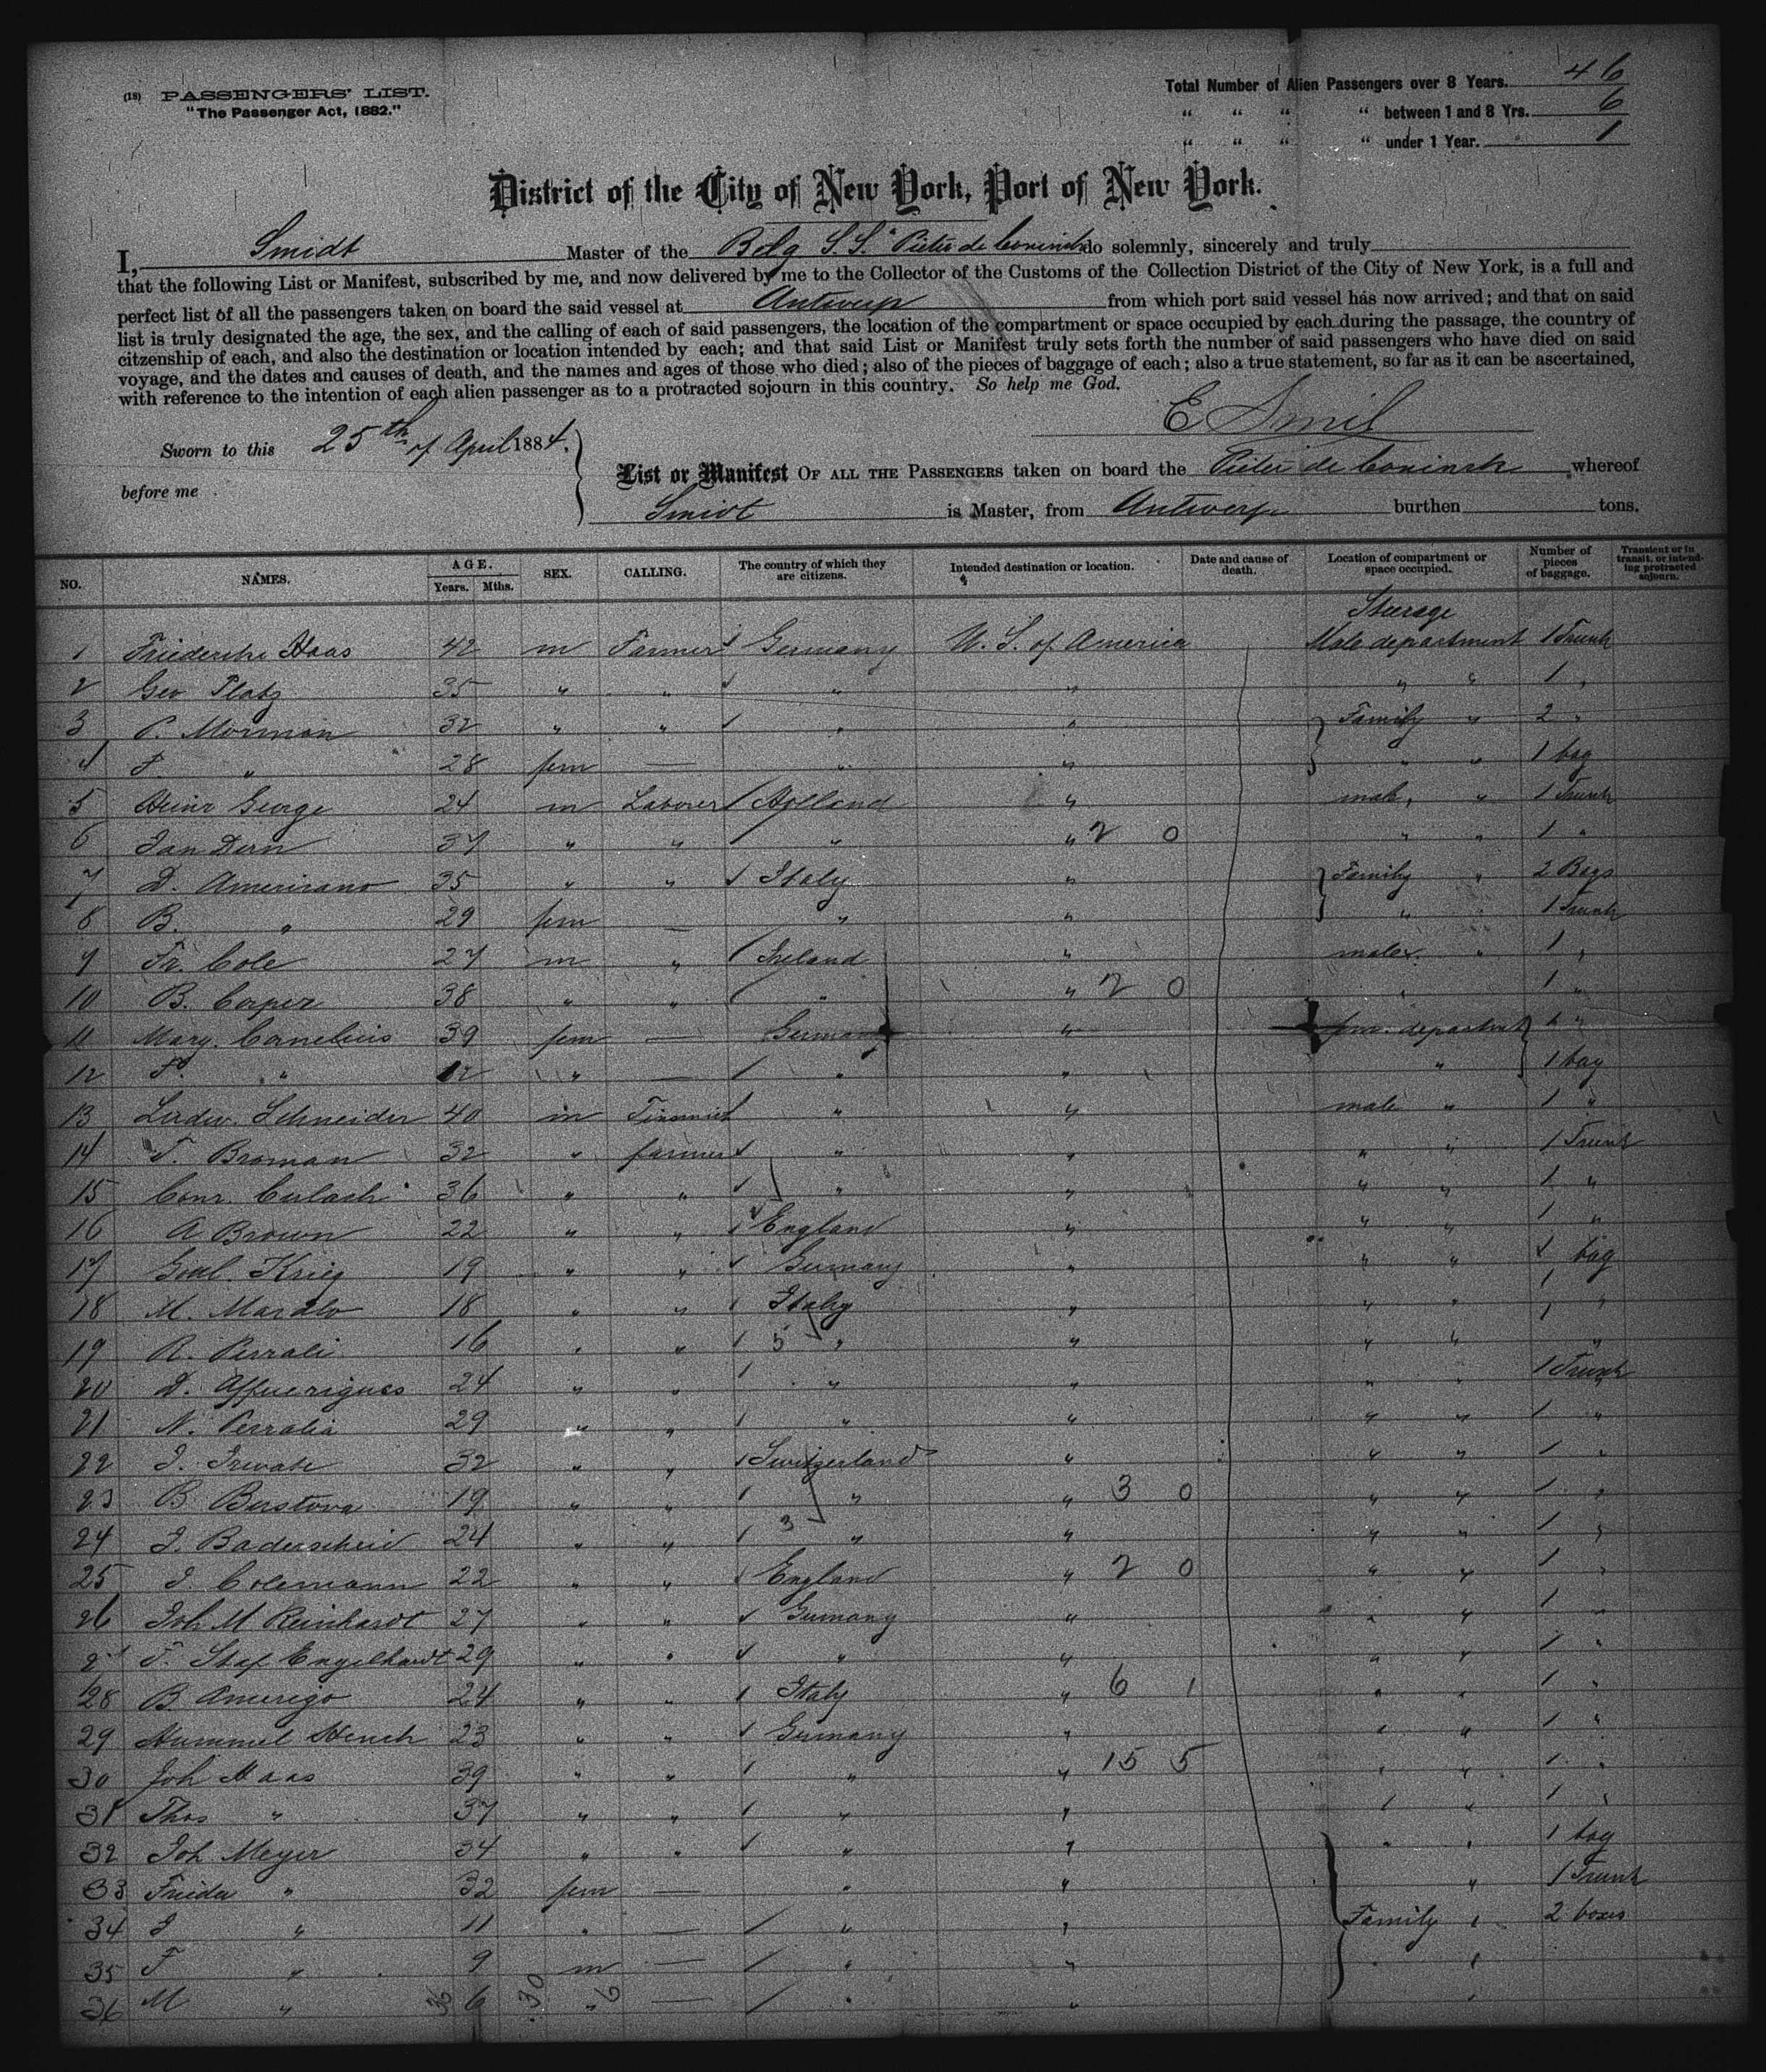 (18) PASSENGERS' LIST.
"The Passenger Act, 1882."
Total Number of Alien Passengers over 8 Years. 46
" " " " between 1 and 8 Yrs. 6
" " " " under 1 Year. 1
District of the City of New York, Port of New York.
I, Smidt Master of the Belg S.S. "Pieter de Coninck do solemnly, sincerely and truly
that the following List or Manifest, subscribed by me, and now delivered by me to the Collector of the Customs of the Collection District of the City of New York, is a full and
perfect list of all the passengers taken on board the said vessel at Antwerp from which port said vessel has now arrived; and that on said
list is truly designated the age, the sex, and the calling of each of said passengers, the location of the compartment or space occupied by each during the passage, the country of
citzenship of each, and also the destination or location intended by each; and that said List or Manifest truly sets forth the number of said passengers who have died on said
voyage, and the dates and causes of death, and the names and ages of those who died; also of the pieces of baggage of each; also a true statement, so far as it can be ascertained,
with reference to the intention of each alien passenger as to a protracted sojourn in this country. So help me God.
E Smit
Sworn to this 25th of April 1884.
before me
List or Manifest OF ALL THE PASSENGERS taken on board the Pieter de Coninck whereof
Smidt is Master, from Antwerp burthen tons.
NO. NAMES. AGE. Years. Mths. SEX. CALLING. The country of which they are citizens. Intended destination or location. Date and cause of death. Location of compartment or space occupied. Number of pieces of baggage. Transient or in transit, or intending protracted sojourn.
Steerage
1 Haas 42 m Farmer Germany U. S. of America Male department 1 Trunk
2 Geo Platz 35 " " " " " " 1 "
3 P. Morman 32 " " " " Family " 2 "
4 F. " 28 fem — " " " " 1 bag
5 Heinr George 24 m Laborer Holland " male " 1 Trunk
6 Jan Dern 37 " " " " 2 0 " " 1 "
7 D. Americano 35 " " Italy " Family " 2 Bags
8 B. " 29 fem — " " " " 1 Trunk
9 Fr. Cole 27 m " Ireland " male " 1 "
10 B. Casper 38 " " " " 2 0 " " 1 "
11 Mary Cornelius 39 fem — Germany " fem. department "
12 F. " 12 " — " " " 1 bag
13 Ludw. Schneider 40 m " " male " 1 "
14 T. Broman 32 " farmer " " " " 1 Trunk
15 Conr. 36 " " " " " " 1 "
16 A Brown 22 " " England " " " 1 "
17 Krieg 19 " " Germany " " " 1 bag
18 M. 18 " " Italy " " " 1 "
19 R. Perrali 16 " " 5 " " " " "
20 D. 24 " " " " " " 1 Trunk
21 N. Perralia 29 " " " " " " 1 "
22 J. 32 " " Switzerland " " " 1 "
23 B 19 " " " " 3 0 " " 1 "
24 J. Baderscheid 24 " " 3 " " " " 1 "
25 J. Colemann 22 " " England " 2 0 " " 1 "
26 Joh M Reinhardt 27 " " Germany " " " 1 "
27 F. Engelhardt 29 " " " " " " 1 "
28 B. Amerigo 24 " " Italy " 6 1 " " 1 "
29 Hummel 23 " " Germany " " " 1 "
30 Joh Haas 39 " " " " 15 5 " " 1 "
31 Thos " 37 " " " " " " 1 "
32 Joh Meyer 34 " " " " " " 1 bag
33 Frieda " 32 fem — " " " 1 Trunk
34 J " 11 " — " " Family " 2 boxes
35 F " 9 m — " " " "
36 M " 36 6 30 " 6 — " " "